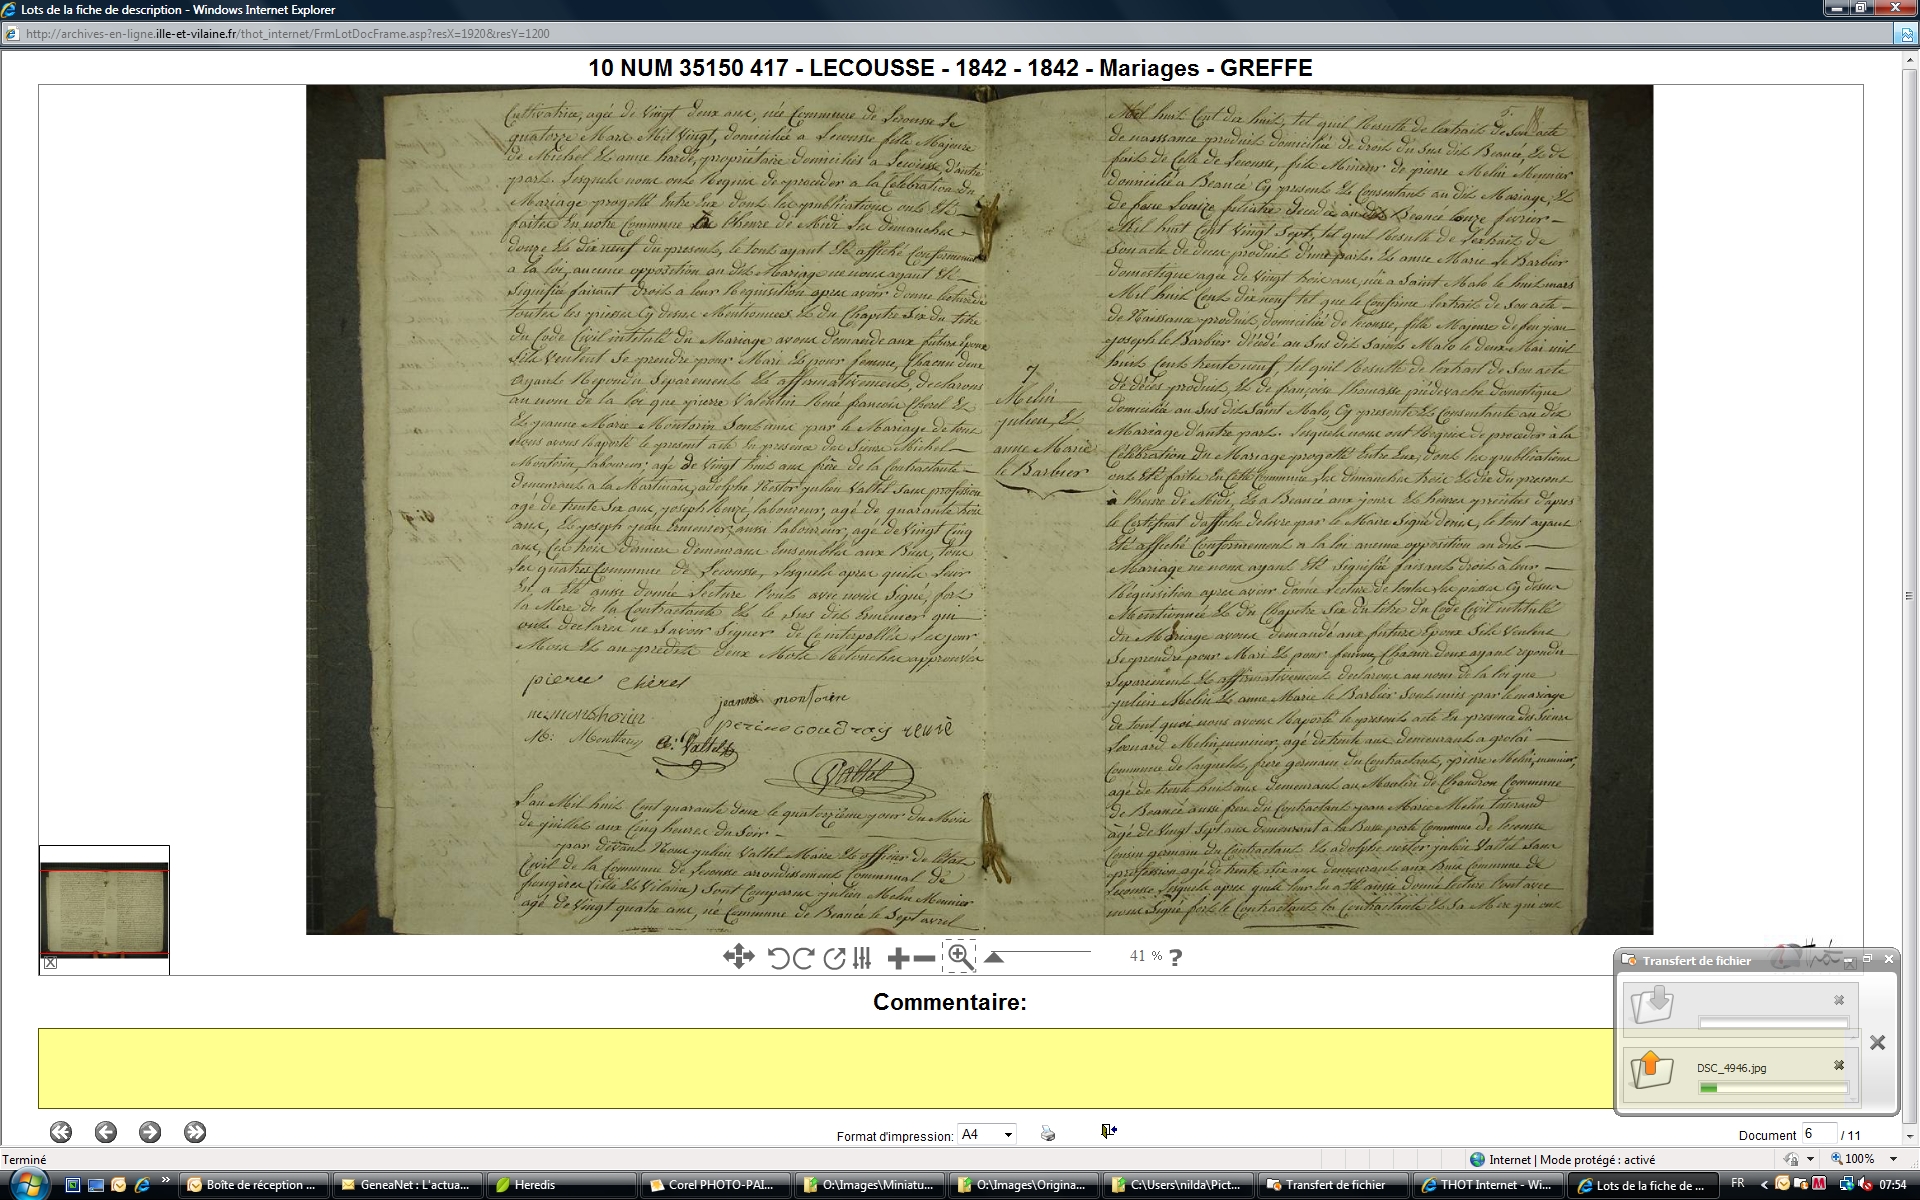 Lots de la fiche de description - Windows Internet Explorer
http://archives-en-ligne.ille-et-vilaine.fr/thot_internet/FrmLotDocFrame.asp?resX=1920&resY=1200
10 NUM 35150 417 - LECOUSSE - 1842 - 1842 - Mariages - GREFFE
Cultivatrice, agée de Vingt deux ans, née Commune de Lecousse le
quatorze Mars Mil Vingt, domiciliée a Lecousse fille Majeure
de Michel Et anne hardé, propriétaire domiciliés a Lecousse, d'autre
part. Lesquels nous ont Requis de proceder a la Célébration du
Mariage progetté Entre Eux dont les publications ont Eté
faites En notre Commune à l'heure de Midi les dimanches
douze Et dix neuf du present, le tout ayant Eté affiché Conformement
a la loi, aucune opposition au dit Mariage ne nous ayant Eté
Signifiée faisant droit a leur Requisition apres avoir donné lecture de
toutes les pieces Cy dessus Mentionnees Et du Chapitre Six du titre
du Code Civil intitulé du Mariage avons demandé aux futurs Epoux
S'ils Veulent Se prendre pour Mari Et pour femme, Chacun d'eux
ayant Repondu Separement Et affirmativement, declarons
au nom de la loi que pierre Valentin René francois Cherel Et
Et jeanne Marie Montorin Sont unis par le Mariage de tout
Nous avons Raporté le present acte En presence des Sieurs Michel
Montorin, laboureur, agé de Vingt huit ans frère de la Contractante
demeurant a la Martinais, adolphe Nestor julien Vallet Sans profession
agé de trente Six ans, joseph Renzé, laboureur, agé de quarante trois
ans, Et joseph jean Ermenier, aussi laboureur, agé de Vingt Cinq
ans, Ces trois derniers demeurans Ensembles aux Buis, tous
les quatres Commune de Lecousse, lesquels apres qu'ils leur
En a Eté aussi donné Lecture l'ont avec nous Signé, fors
la Mere de la Contractante Et le Sus dit Ermenier qui
ont declarés ne Savoir Signer de Ce interpellés les jour
Mois Et an predits deux Mots Retouchés approuvés
pierre Cherel
jeanne montorin
m. monthorin
perine coudray renzé
M. Monthorin
a. Vallet
Vallet
L'an Mil huit Cent quarante deux le quatorzième jour du Mois
de juillet aux Cinq heures du Soir
par devant Nous julien Vallet Maire Et officier de l'état
Civil de la Commune de Lecousse arrondissement Communal de
fougères (ille Et Vilaine) Sont Comparus julien Melin Meunier
agé de Vingt quatre ans, né Commune de Beaucé le Sept avril
7
Melin
julien, Et
anne Marie
le Barbier
Mil huit Cent dix huit, tel qu'il Resulte de l'extrait de Son acte
de naissance produit domicilié de droit du Sus dit Beaucé, Et de
fait de Celle de Lecousse, fils Mineur de pierre Melin Meunier
domicilié a Beaucé Cy present Et Consentant au dit Mariage, Et
de feue Louize decedée au dit Beaucé le onze fevrier
Mil huit Cent Vingt Sept, tel qu'il Resulte de l'extrait de
Son acte de deces produit d'une part. Et anne Marie Le Barbier
domestique agée de Vingt trois ans, née a Saint Malo le huit mars
Mil huit Cent dix neuf tel que le Confirme l'extrait de Son acte
de Naissance produit, domiciliée de Lecousse, fille Majeure de feu jean
joseph le Barbier décédé au Sus dit Saint Malo le deux Mai mil
huit Cent trente neuf, tel qu'il Resulte de l'extrait de Son acte
de décès produit Et de françoise thomasse piédevache domestique
domiciliée au Sus dit Saint Malo, Cy presente Et Consentante au dit
Mariage d'autre part. Lesquels nous ont Requis de proceder à la
Célébration du Mariage progetté Entre Eux, dont les publications
ont Eté faites En Cette Commune les dimanches trois Et dix du present
à l'heure de Midi, Et a Beaucé aux jours Et heures précités d'apres
le Certificat d'affiche delivré par le Maire Signé deux, le tout ayant
Eté affiché Conformement a la loi aucune opposition au dit
Mariage ne nous ayant Eté Signifiée faisant droit à leur
Réquisition apres avoir donné Lecture de toutes les pieces Cy dessus
Mentionnées Et du Chapitre Six du titre du Code Civil intitulé
du Mariage avons demandé aux futurs Epoux S'ils Veulent
Se prendre pour Mari Et pour femme, Chacun d'eux ayant repondu
Separement Et affirmativement declarons au nom de la loi que
julien Melin Et anne Marie le Barbier Sont unis par le mariage
de tout quoi nous avons Raporté le present acte En presence des Sieurs
Leonard Melin, meunier, agé de trente ans demeurant a
Commune de laignelet, frere germain du Contractant, pierre Melin, meunier,
agé de trente huit ans demeurant au Moulin de Chaudron Commune
de Beaucé aussi frère du Contractant jean Marie Melin
agé de Vingt Sept ans demeurant a la Basse porte Commune de lecousse
Cousin germain du Contractant Et adolphe nestor julien Vallet Sans
profession agé de trente Six ans demeurant aux Buis Commune de
Lecousse, lesquels apres qu'ils leur En a Eté aussi donné lecture l'ont avec
nous Signé fors le Contractant la Contractante Et Sa Mere qui ont
41 % ?
Commentaire:
Transfert de fichier
DSC_4946.jpg
Format d'impression: A4
Document 6 / 11
Terminé
Internet | Mode protégé : activé
100%
Boîte de réception ...
GeneaNet : L'actua...
Heredis
Corel PHOTO-PAI...
O:\Images\Miniatu...
O:\Images\Origina...
C:\Users\nilda\Pict...
Transfert de fichier
THOT Internet - Wi...
Lots de la fiche de ...
FR
07:54